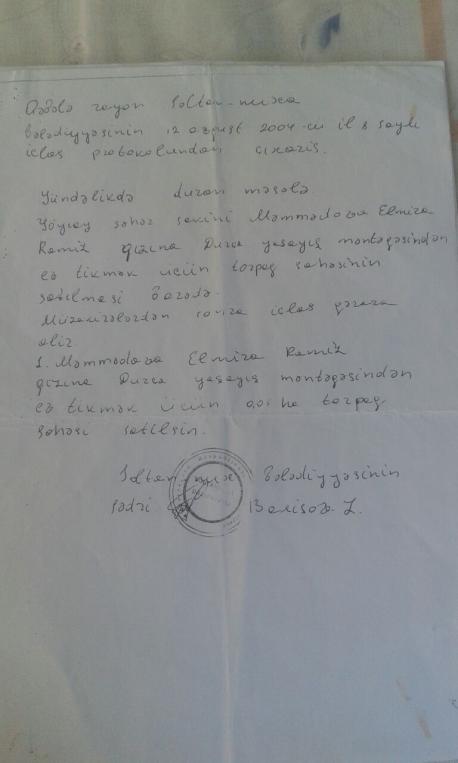 Qəbələ rayon Soltan-nuxa
bələdiyyəsinin 12 avqust 2004-cü il 8 saylı
iclas protokolundan çıxarış.
Gündəlikdə duran məsələ
Göyçay şəhər sakini Məmmədova Elmira
Ramiz qızına Duruca yaşayış məntəqəsindən
ev tikmək üçün torpaq sahəsinin
satılması barədə.
Müzakirələrdən sonra iclas qərara
alır
1. Məmmədova Elmira Ramiz
qızına yaşayış məntəqəsindən
ev tikmək üçün ha torpaq
sahəsi satılsın.
Soltan bələdiyyəsinin
sədri